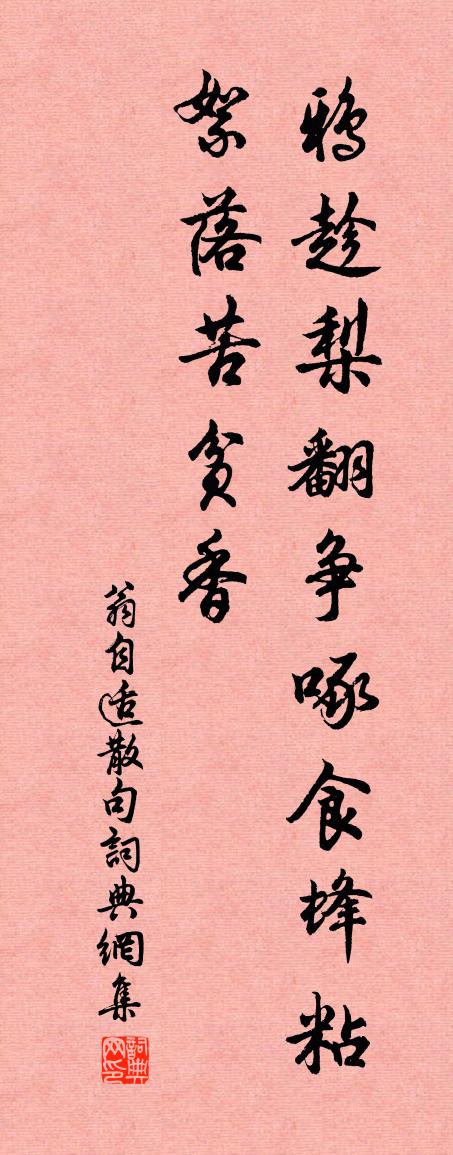 鴉趁梨翻争啄食蜂粘
絮落苦貪香
翁自适散句詞典網集
詞典网印